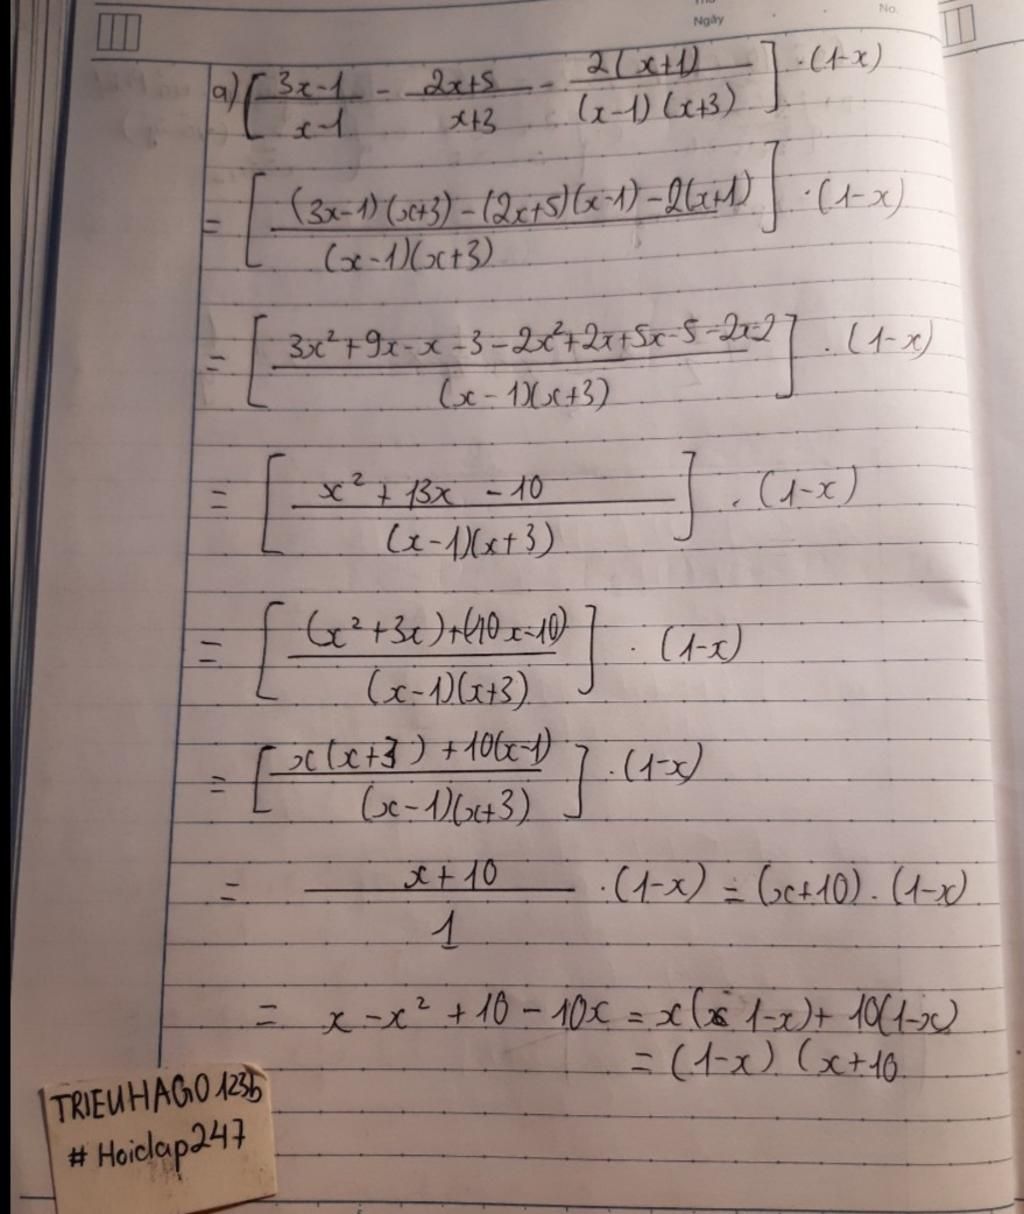 Ngày
No.
a) [ (3x-1)/(x-1) - (2x+5)/(x+3) - 2(x+1)/((x-1)(x+3)) ] . (1-x)
= [ ((3x-1)(x+3) - (2x+5)(x-1) - 2(x+1))/((x-1)(x+3)) ] . (1-x)
= [ (3x² + 9x - x - 3 - 2x² + 2x + 5x - 5 - 2x - 2)/((x-1)(x+3)) ] . (1-x)
= [ (x² + 13x - 10)/((x-1)(x+3)) ] . (1-x)
= [ ((x² + 3x) + (10x - 10))/((x-1)(x+3)) ] . (1-x)
= [ (x(x+3) + 10(x-1))/((x-1)(x+3)) ] . (1-x)
= (x+10)/1 . (1-x) = (x+10) . (1-x)
= x - x² + 10 - 10x = x(1-x) + 10(1-x)
= (1-x) (x+10
TRIEUHAGO123b
# Hoidap247